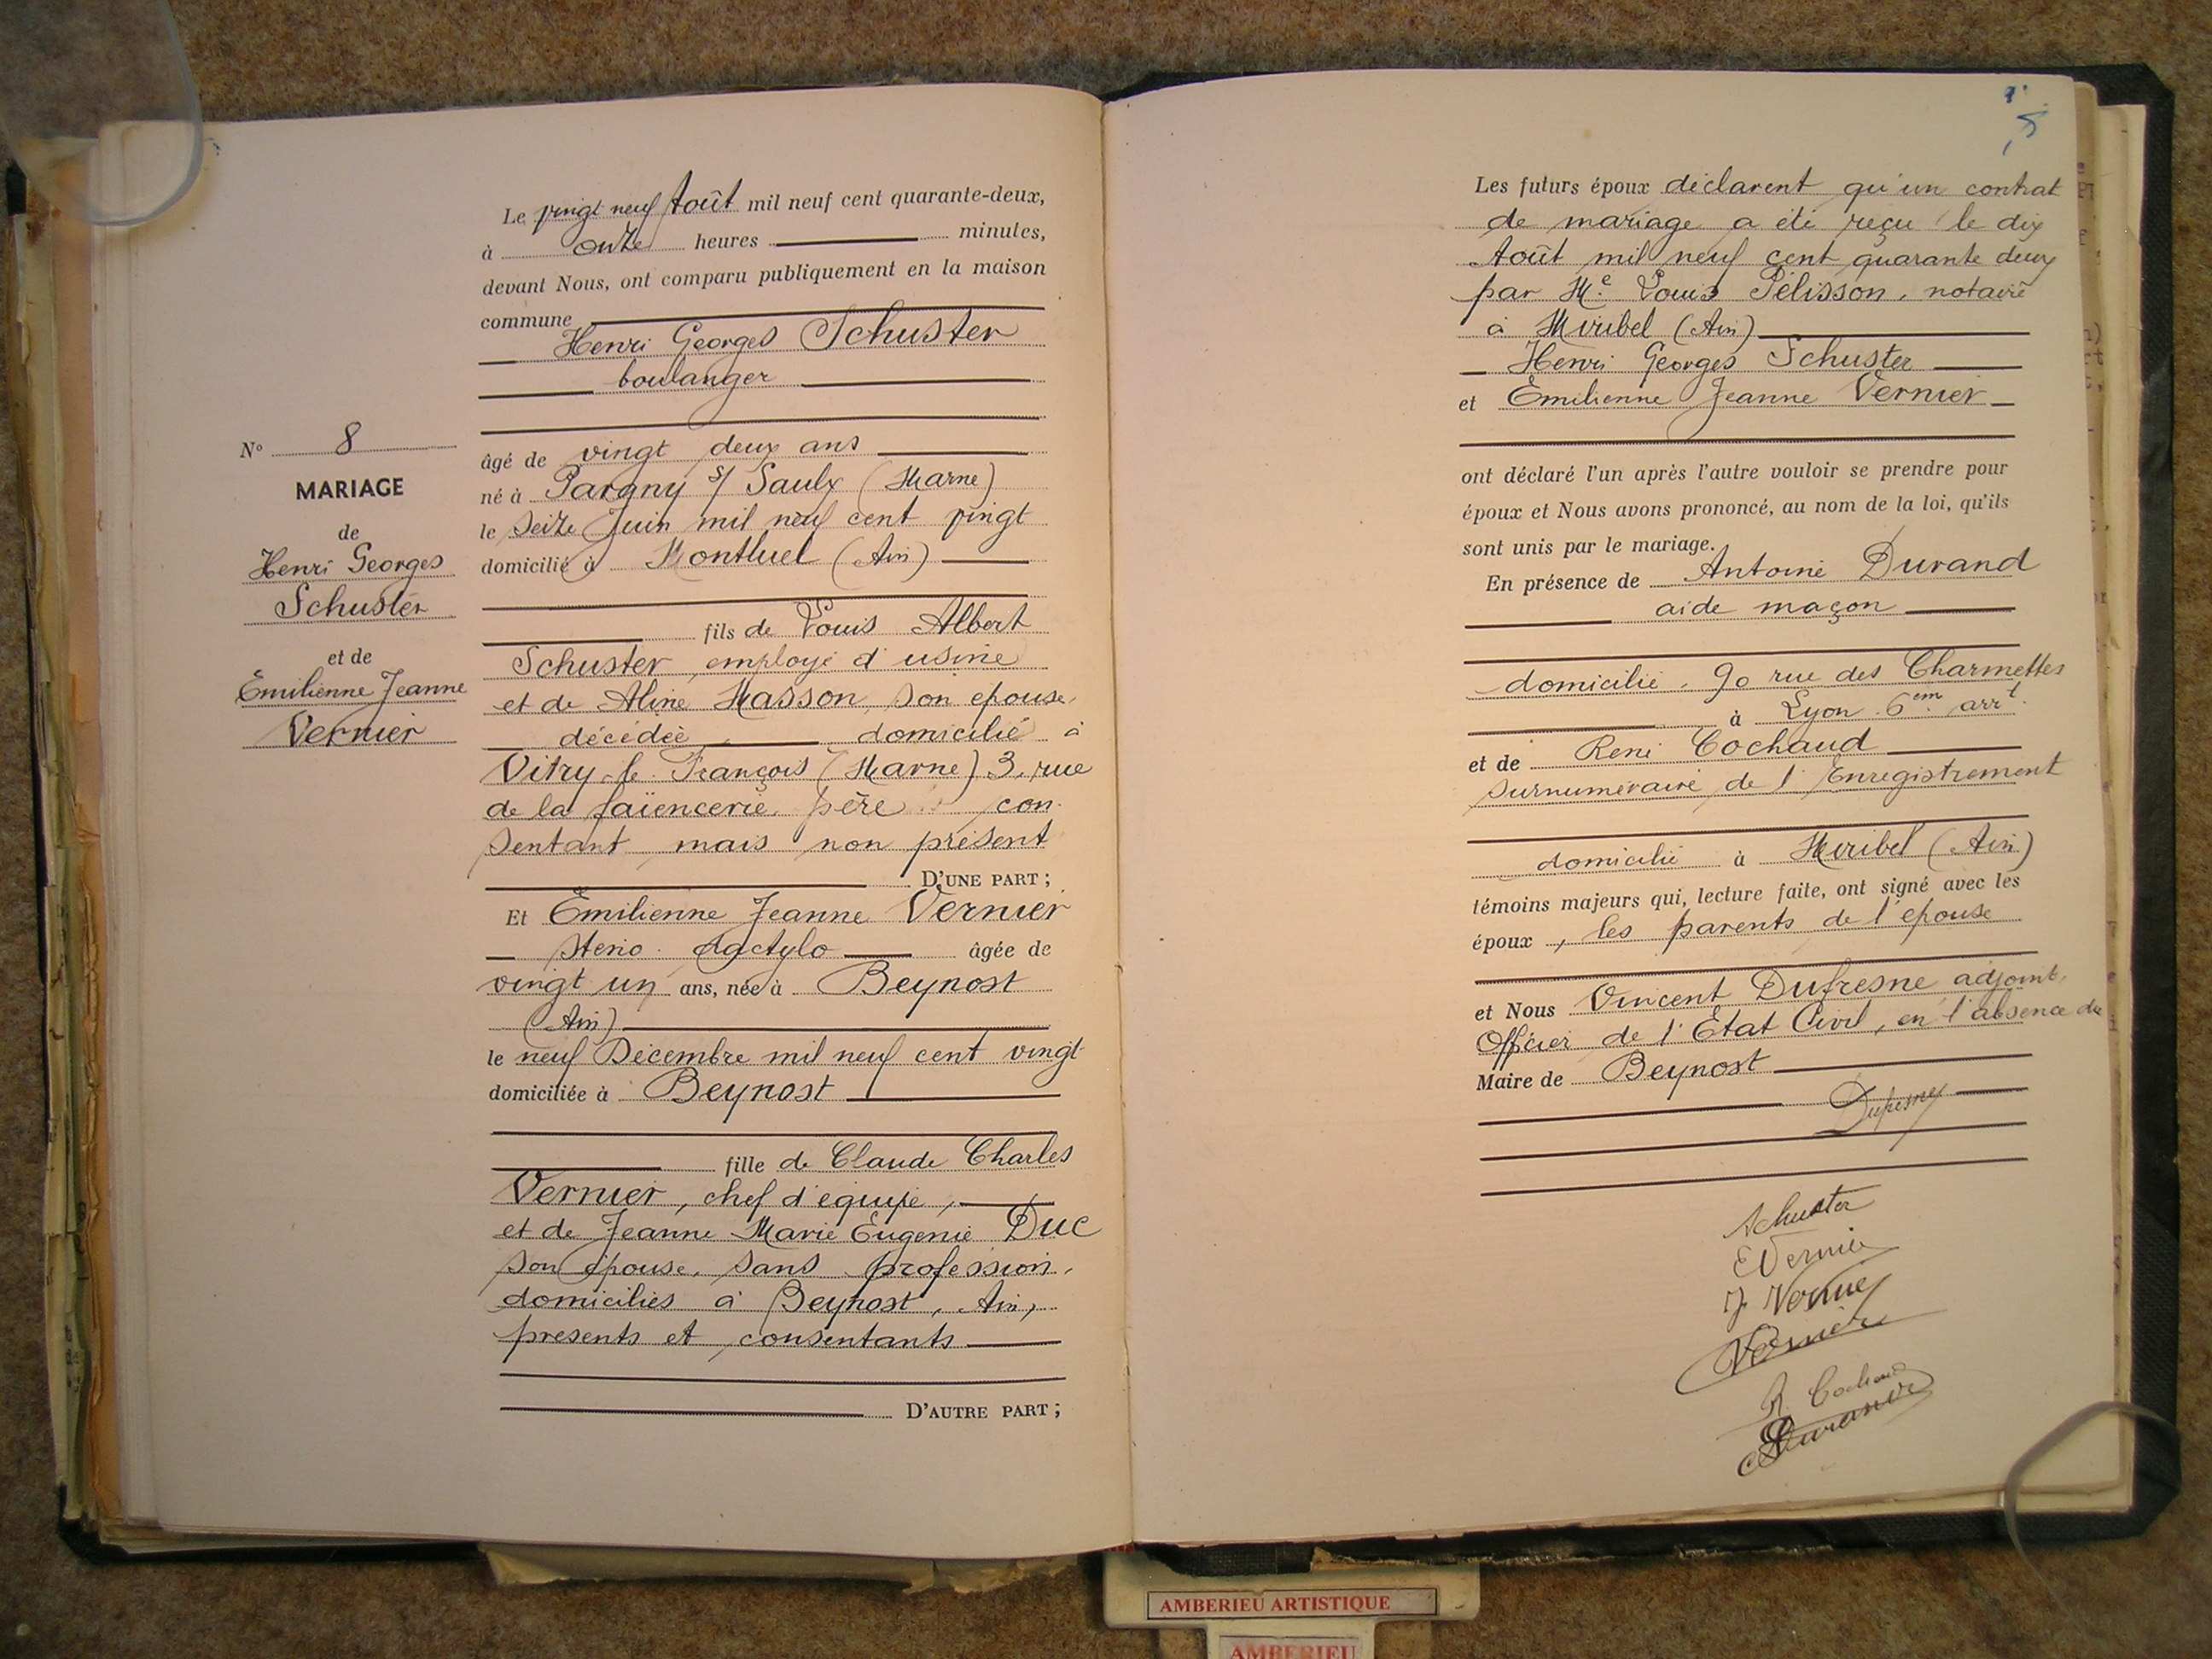 N° 8
MARIAGE
de
Henri Georges
Schuster
et de
Emilienne Jeanne
Vernier
Le vingt neuf Août mil neuf cent quarante-deux,
à onze heures minutes,
devant Nous, ont comparu publiquement en la maison
commune
Henri Georges Schuster
boulanger
âgé de vingt deux ans
né à Pargny s/ Saulx (Marne)
le seize Juin mil neuf cent vingt
domicilié à Montluel (Ain)
fils de Louis Albert
Schuster, employé d'usine
et de Aline Masson, son épouse,
décédée, domicilié à
Vitry-le-François (Marne) 3, rue
de la faïencerie, père con-
sentant mais non présent
D'UNE PART ;
Et Emilienne Jeanne Vernier
sténo-dactylo âgée de
vingt un ans, née à Beynost
(Ain)
le neuf Décembre mil neuf cent vingt
domiciliée à Beynost
fille de Claude Charles
Vernier, chef d'équipe,
et de Jeanne Marie Eugenie Duc
son épouse, sans profession,
domiciliés à Beynost, Ain,
présents et consentants
D'AUTRE PART ;
Les futurs époux déclarent qu'un contrat
de mariage a été reçu le dix
Août mil neuf cent quarante deux
par Me Louis Pélisson, notaire
à Miribel (Ain)
Henri Georges Schuster
et Emilienne Jeanne Vernier
ont déclaré l'un après l'autre vouloir se prendre pour
époux et Nous avons prononcé, au nom de la loi, qu'ils
sont unis par le mariage.
En présence de Antoine Durand
aide maçon
domicilié, 90 rue des Charmettes
à Lyon 6em arrt
et de René Cochaud
surnuméraire de l'Enregistrement
domicilié à Miribel (Ain)
témoins majeurs qui, lecture faite, ont signé avec les
époux, les parents de l'épouse
et Nous Vincent Dufresne adjoint,
Officier de l'Etat Civil, en l'absence du
Maire de Beynost
Dufresne
Schuster
E Vernier
J. Vernier
Vernier
R Cochaud
Durand
AMBERIEU ARTISTIQUE
AMBERIEU